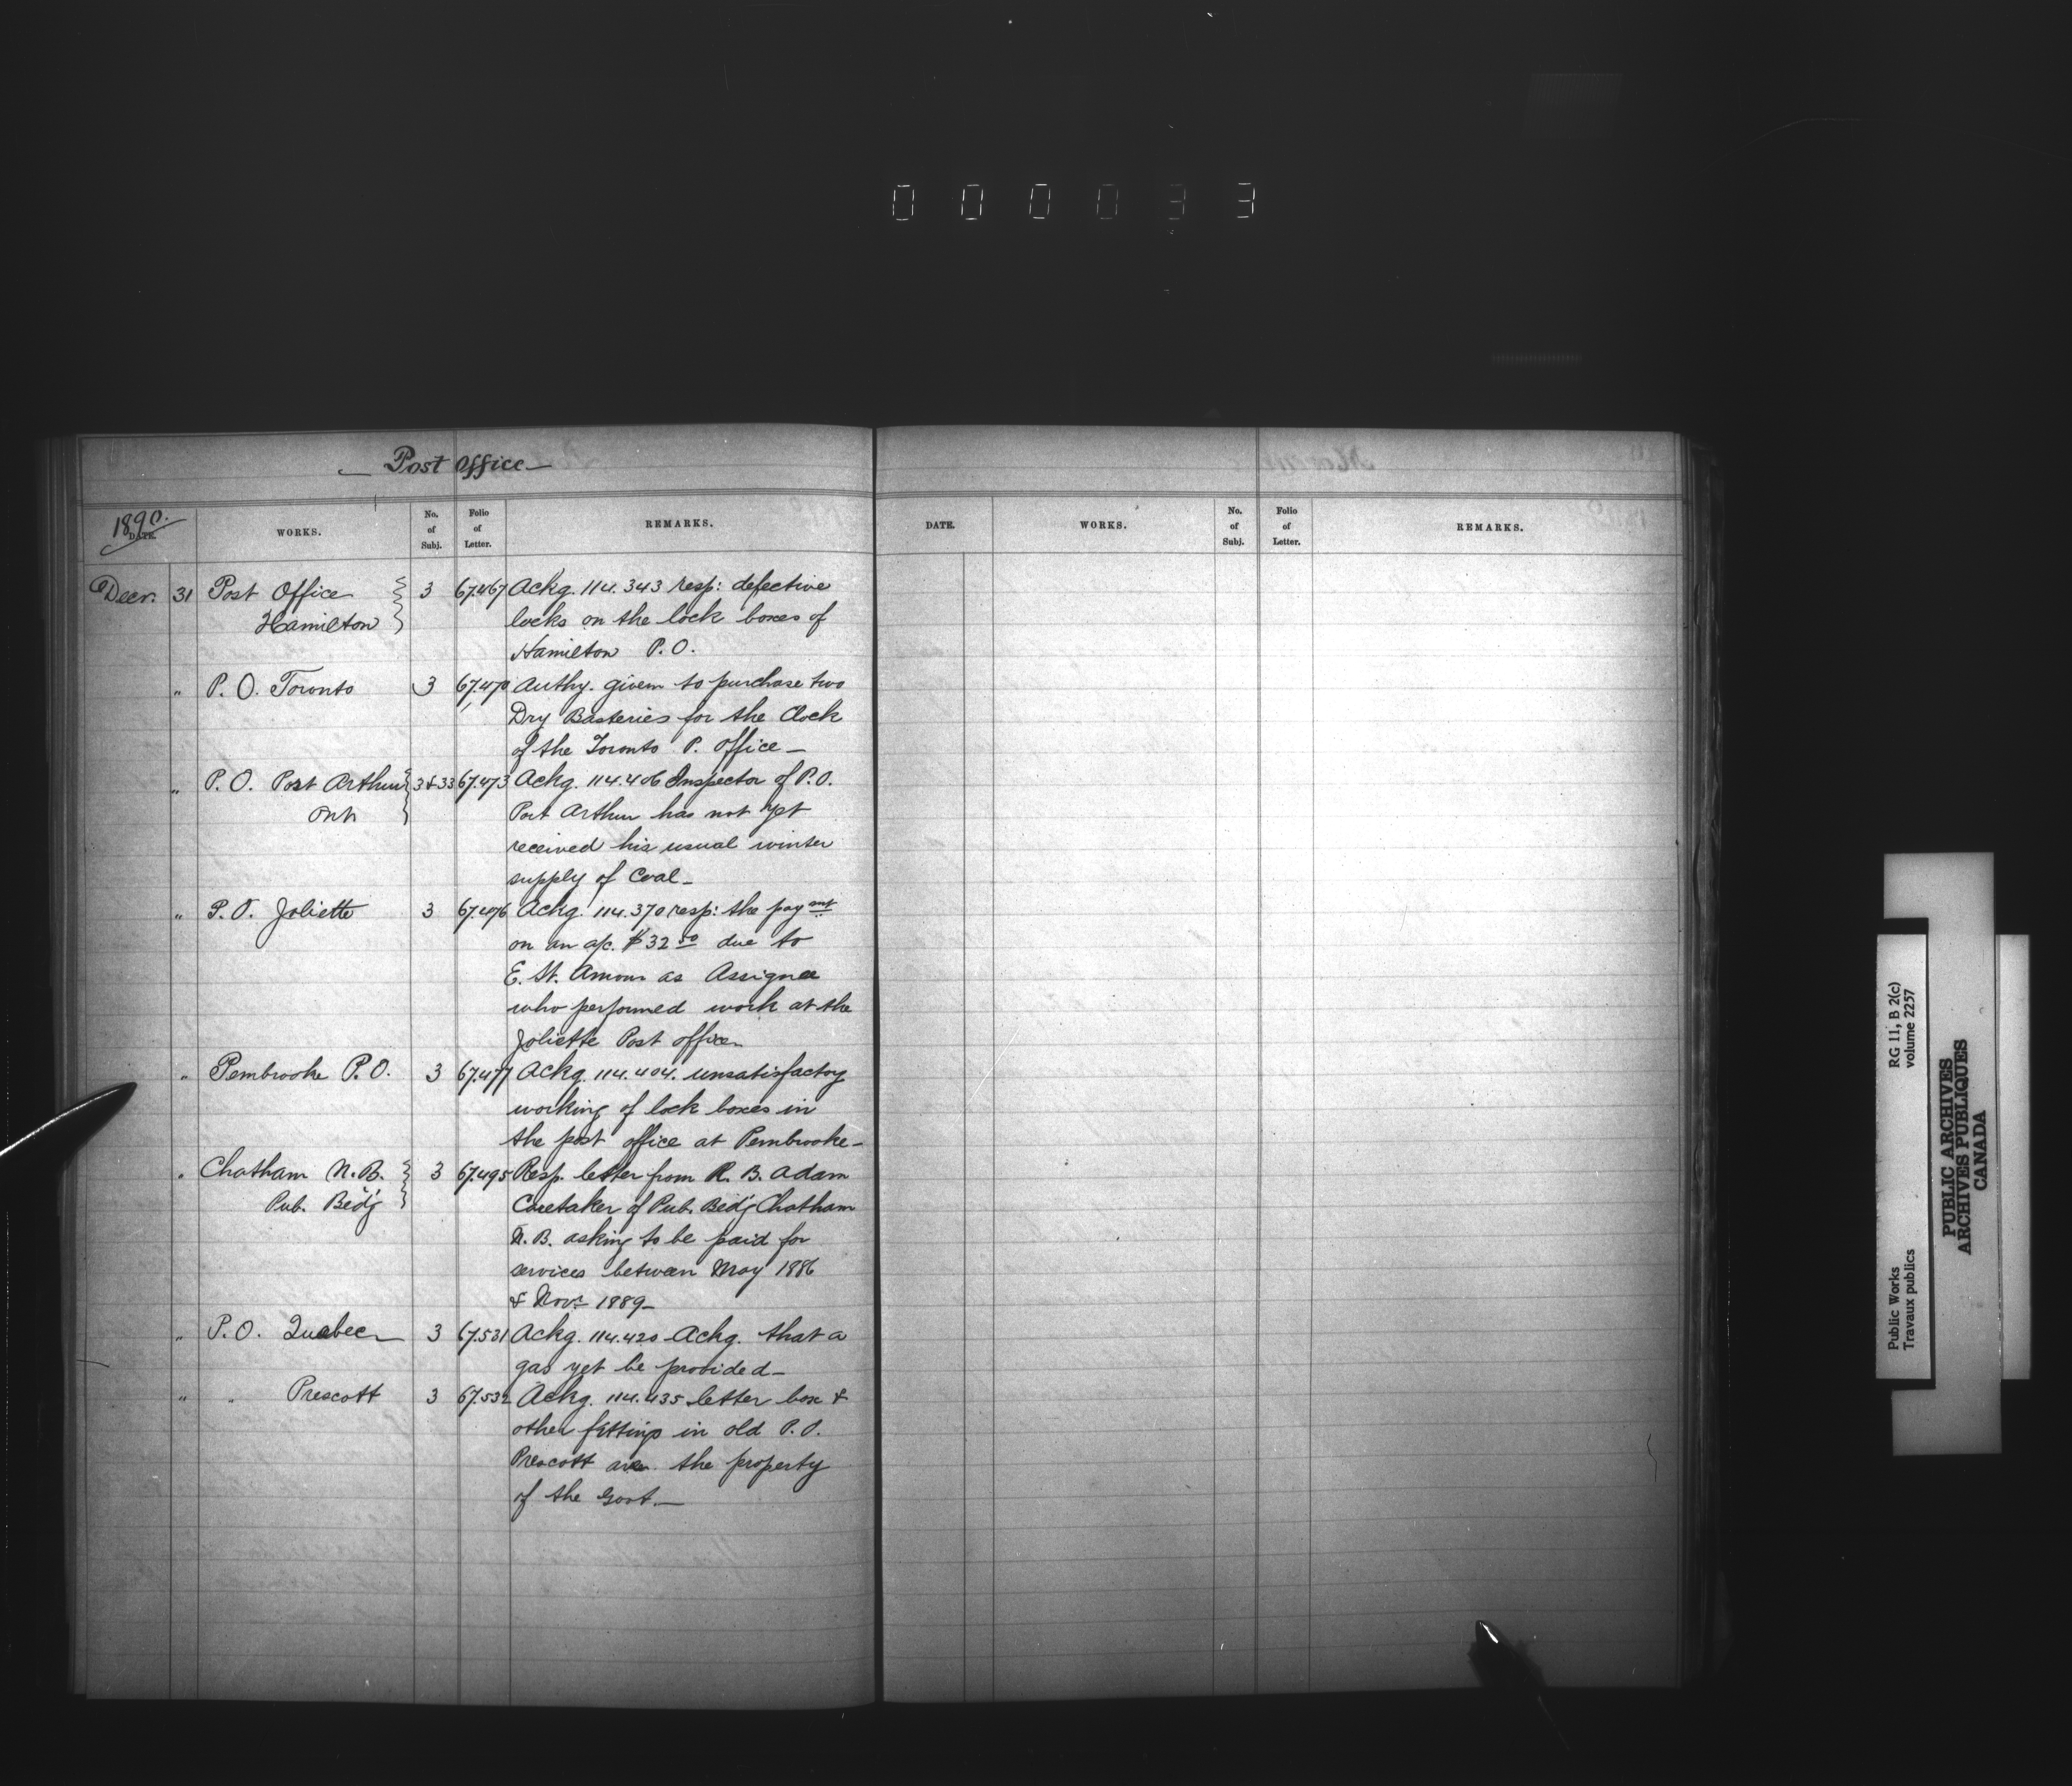 000033
Post Office
1890.
DATE.
WORKS.
No. of Subj.
Folio of Letter.
REMARKS.
Decr. 31 Post Office 3 67.467 Ackg. 114.343 resp: defective
Hamilton locks on the lock boxes of
Hamilton P.O.
" P.O. Toronto 3 67.470 Authy. given to purchase two
Dry Batteries for the Clock
of the Toronto P. Office—
" P.O. Port Arthur 3&33 67.473 Ackg. 114.406 Inspector of P.O.
Ont Port Arthur has not yet
received his usual winter
supply of Coal—
" P.O. Joliette 3 67.476 Ackg. 114.370 resp: the paymt
on an a/c. $32.50 due to
E. St. Amour as Assignee
who performed work at the
Joliette Post office
" Pembroke P.O. 3 67.477 Ackg. 114.404. unsatisfactory
working of lock boxes in
the post office at Pembroke—
" Chatham N.B. 3 67.495 Resp. letter from R. B. Adam
Pub. Bld'g Caretaker of Pub. Bld'g Chatham
N.B. asking to be paid for
services between May 1886
& Novr 1889—
" P.O. Quebec 3 67.531 Ackg. 114.420 Ackg. that a
gas yet be provided—
" " Prescott 3 67.532 Ackg. 114.435 letter box &
other fittings in old P.O.
Prescott are the property
of the Govt.—
DATE.
WORKS.
No. of Subj.
Folio of Letter.
REMARKS.
Public Works RG 11, B 2(c)
Travaux publics volume 2257
PUBLIC ARCHIVES
ARCHIVES PUBLIQUES
CANADA